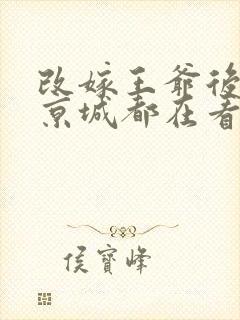 改嫁王爺後
京城都在看
侯寶峰